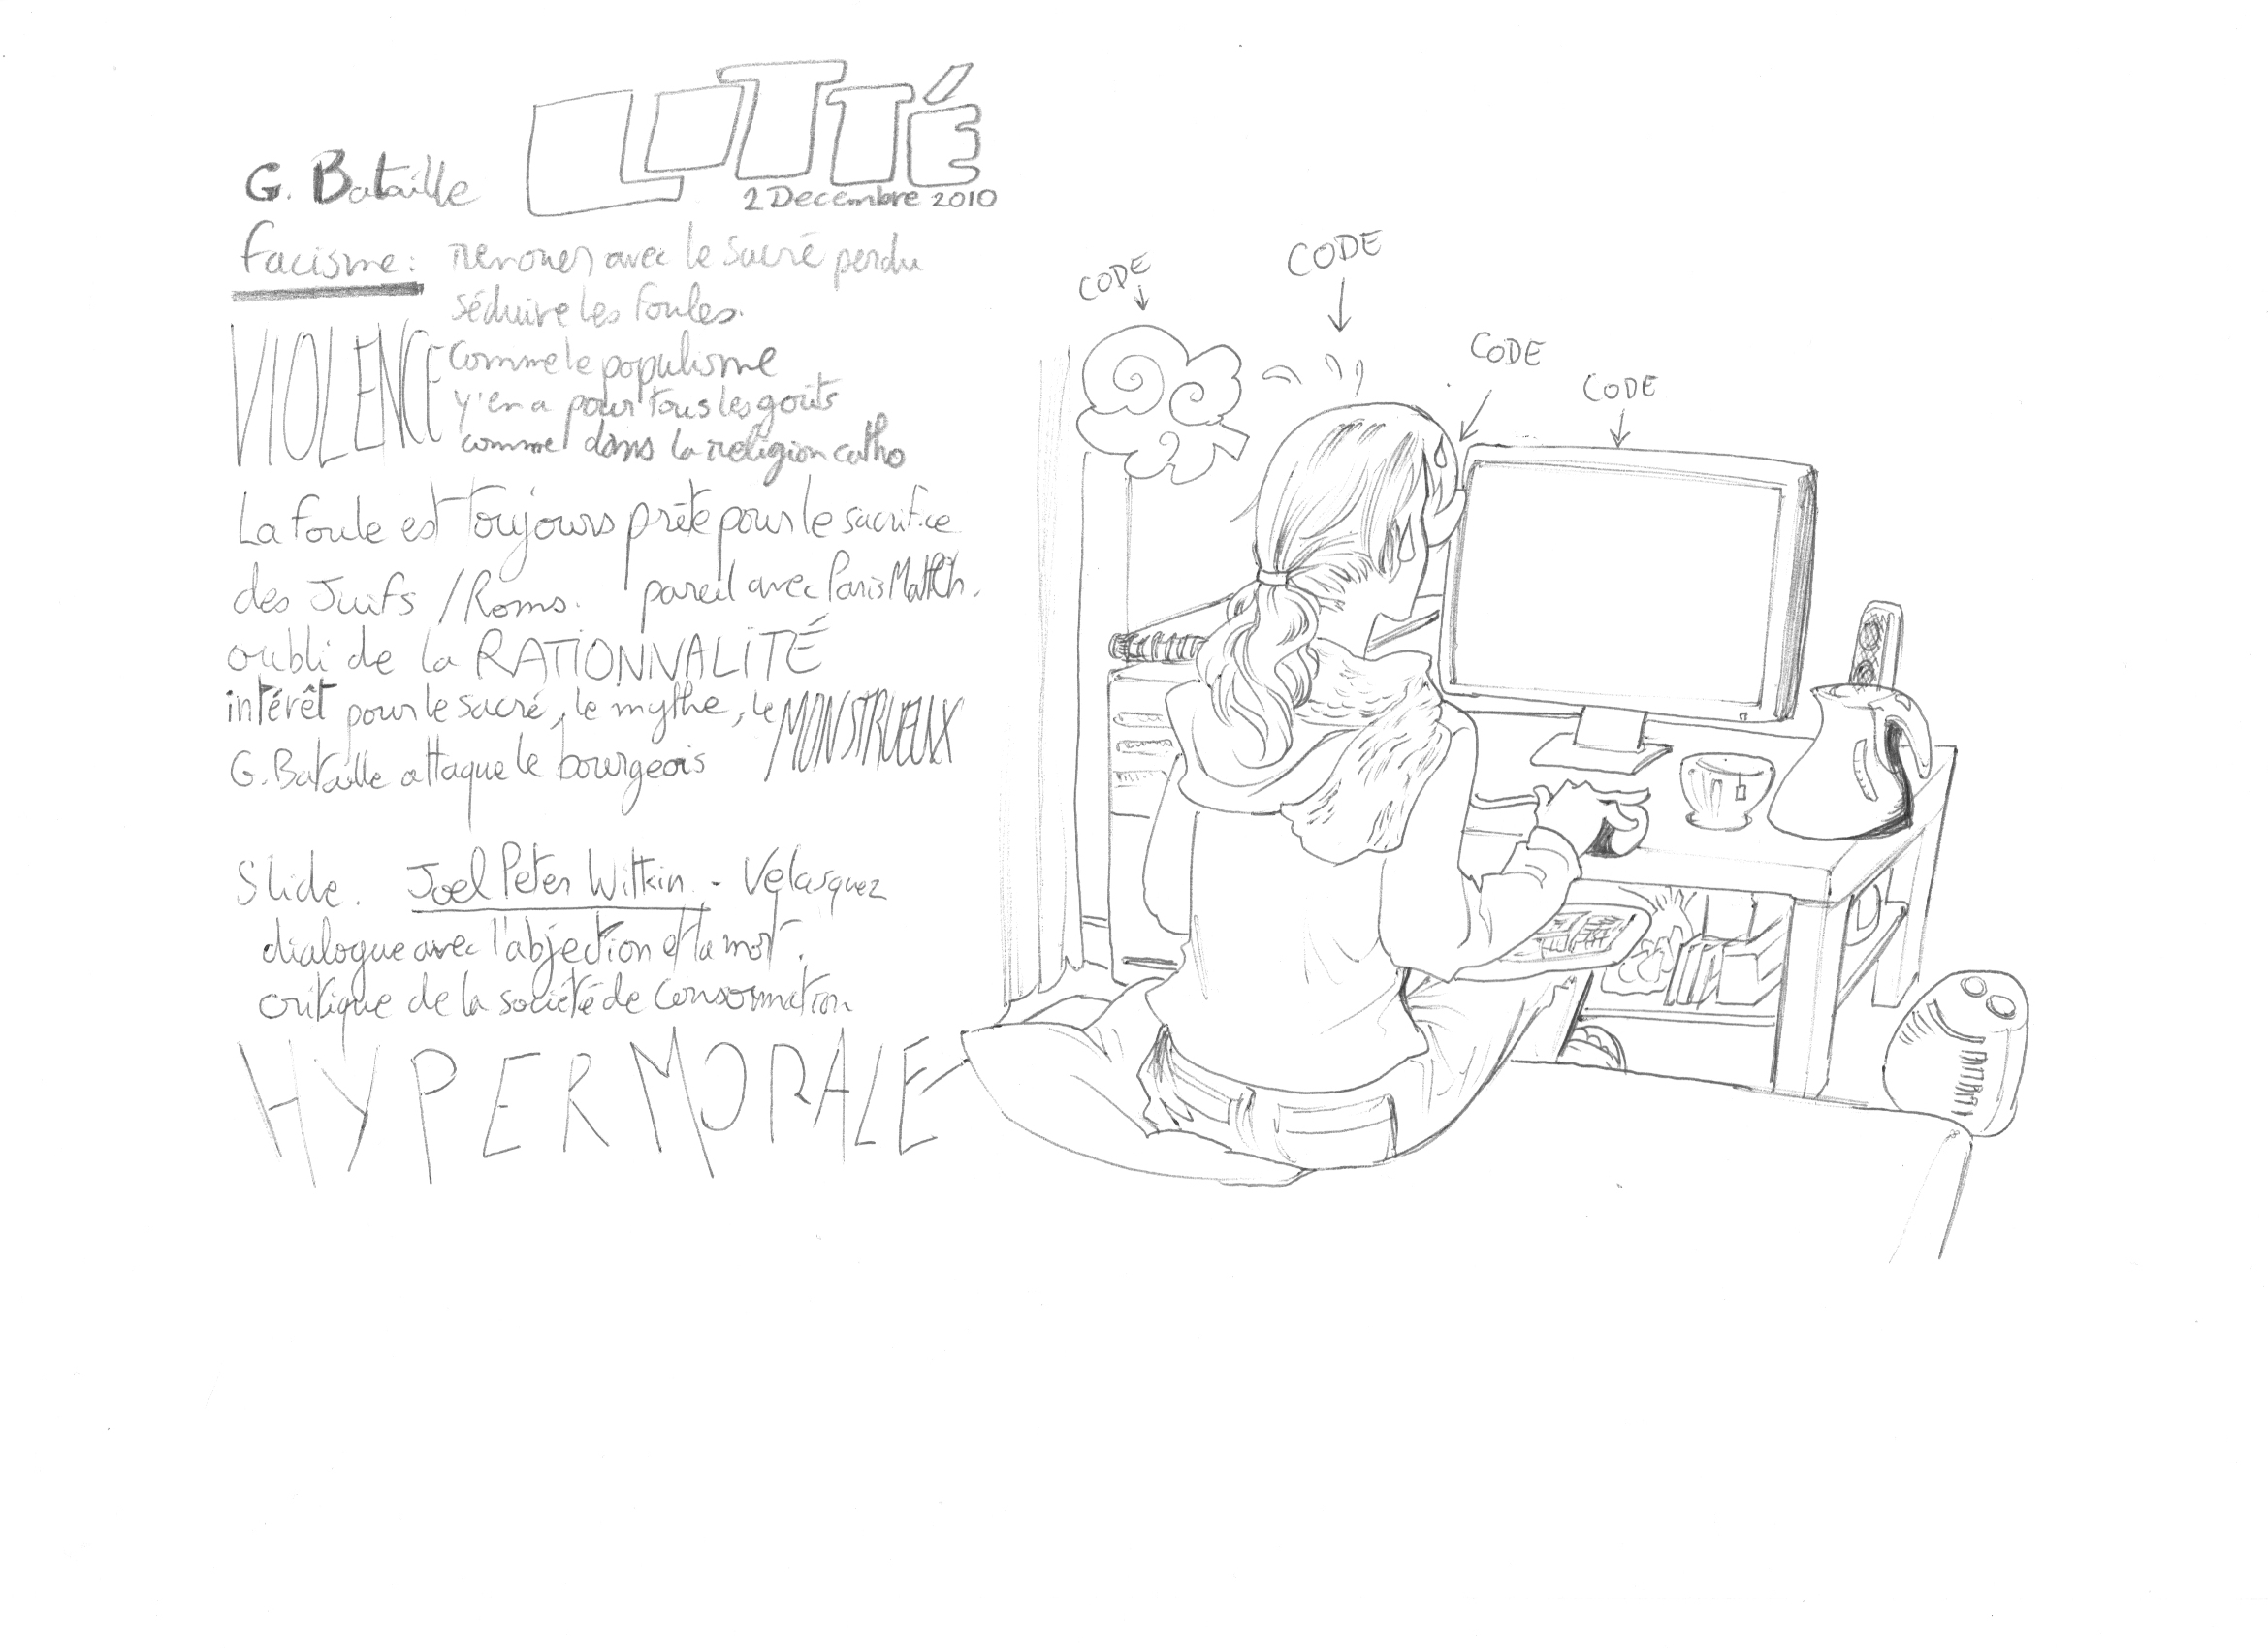 LOTTÉ
2 Decembre 2010
G. Bataille
facisme : renouer avec le sacré perdu
séduire les foules.
VIOLENCE comme le populisme
y'en a pour tous les goûts
comme dans la religion catho
La foule est toujours prête pour le sacrifice
des Juifs / Roms. pareil avec Paris Match.
oubli de la RATIONNALITÉ
intérêt pour le sacré, le mythe, le MONSTRUEUX
G. Bataille attaque le bourgeois
Slide. Joel Peter Witkin - Velasquez
dialogue avec l'abjection et la mort.
critique de la société de consommation
HYPERMORALE
CODE
CODE
CODE
CODE